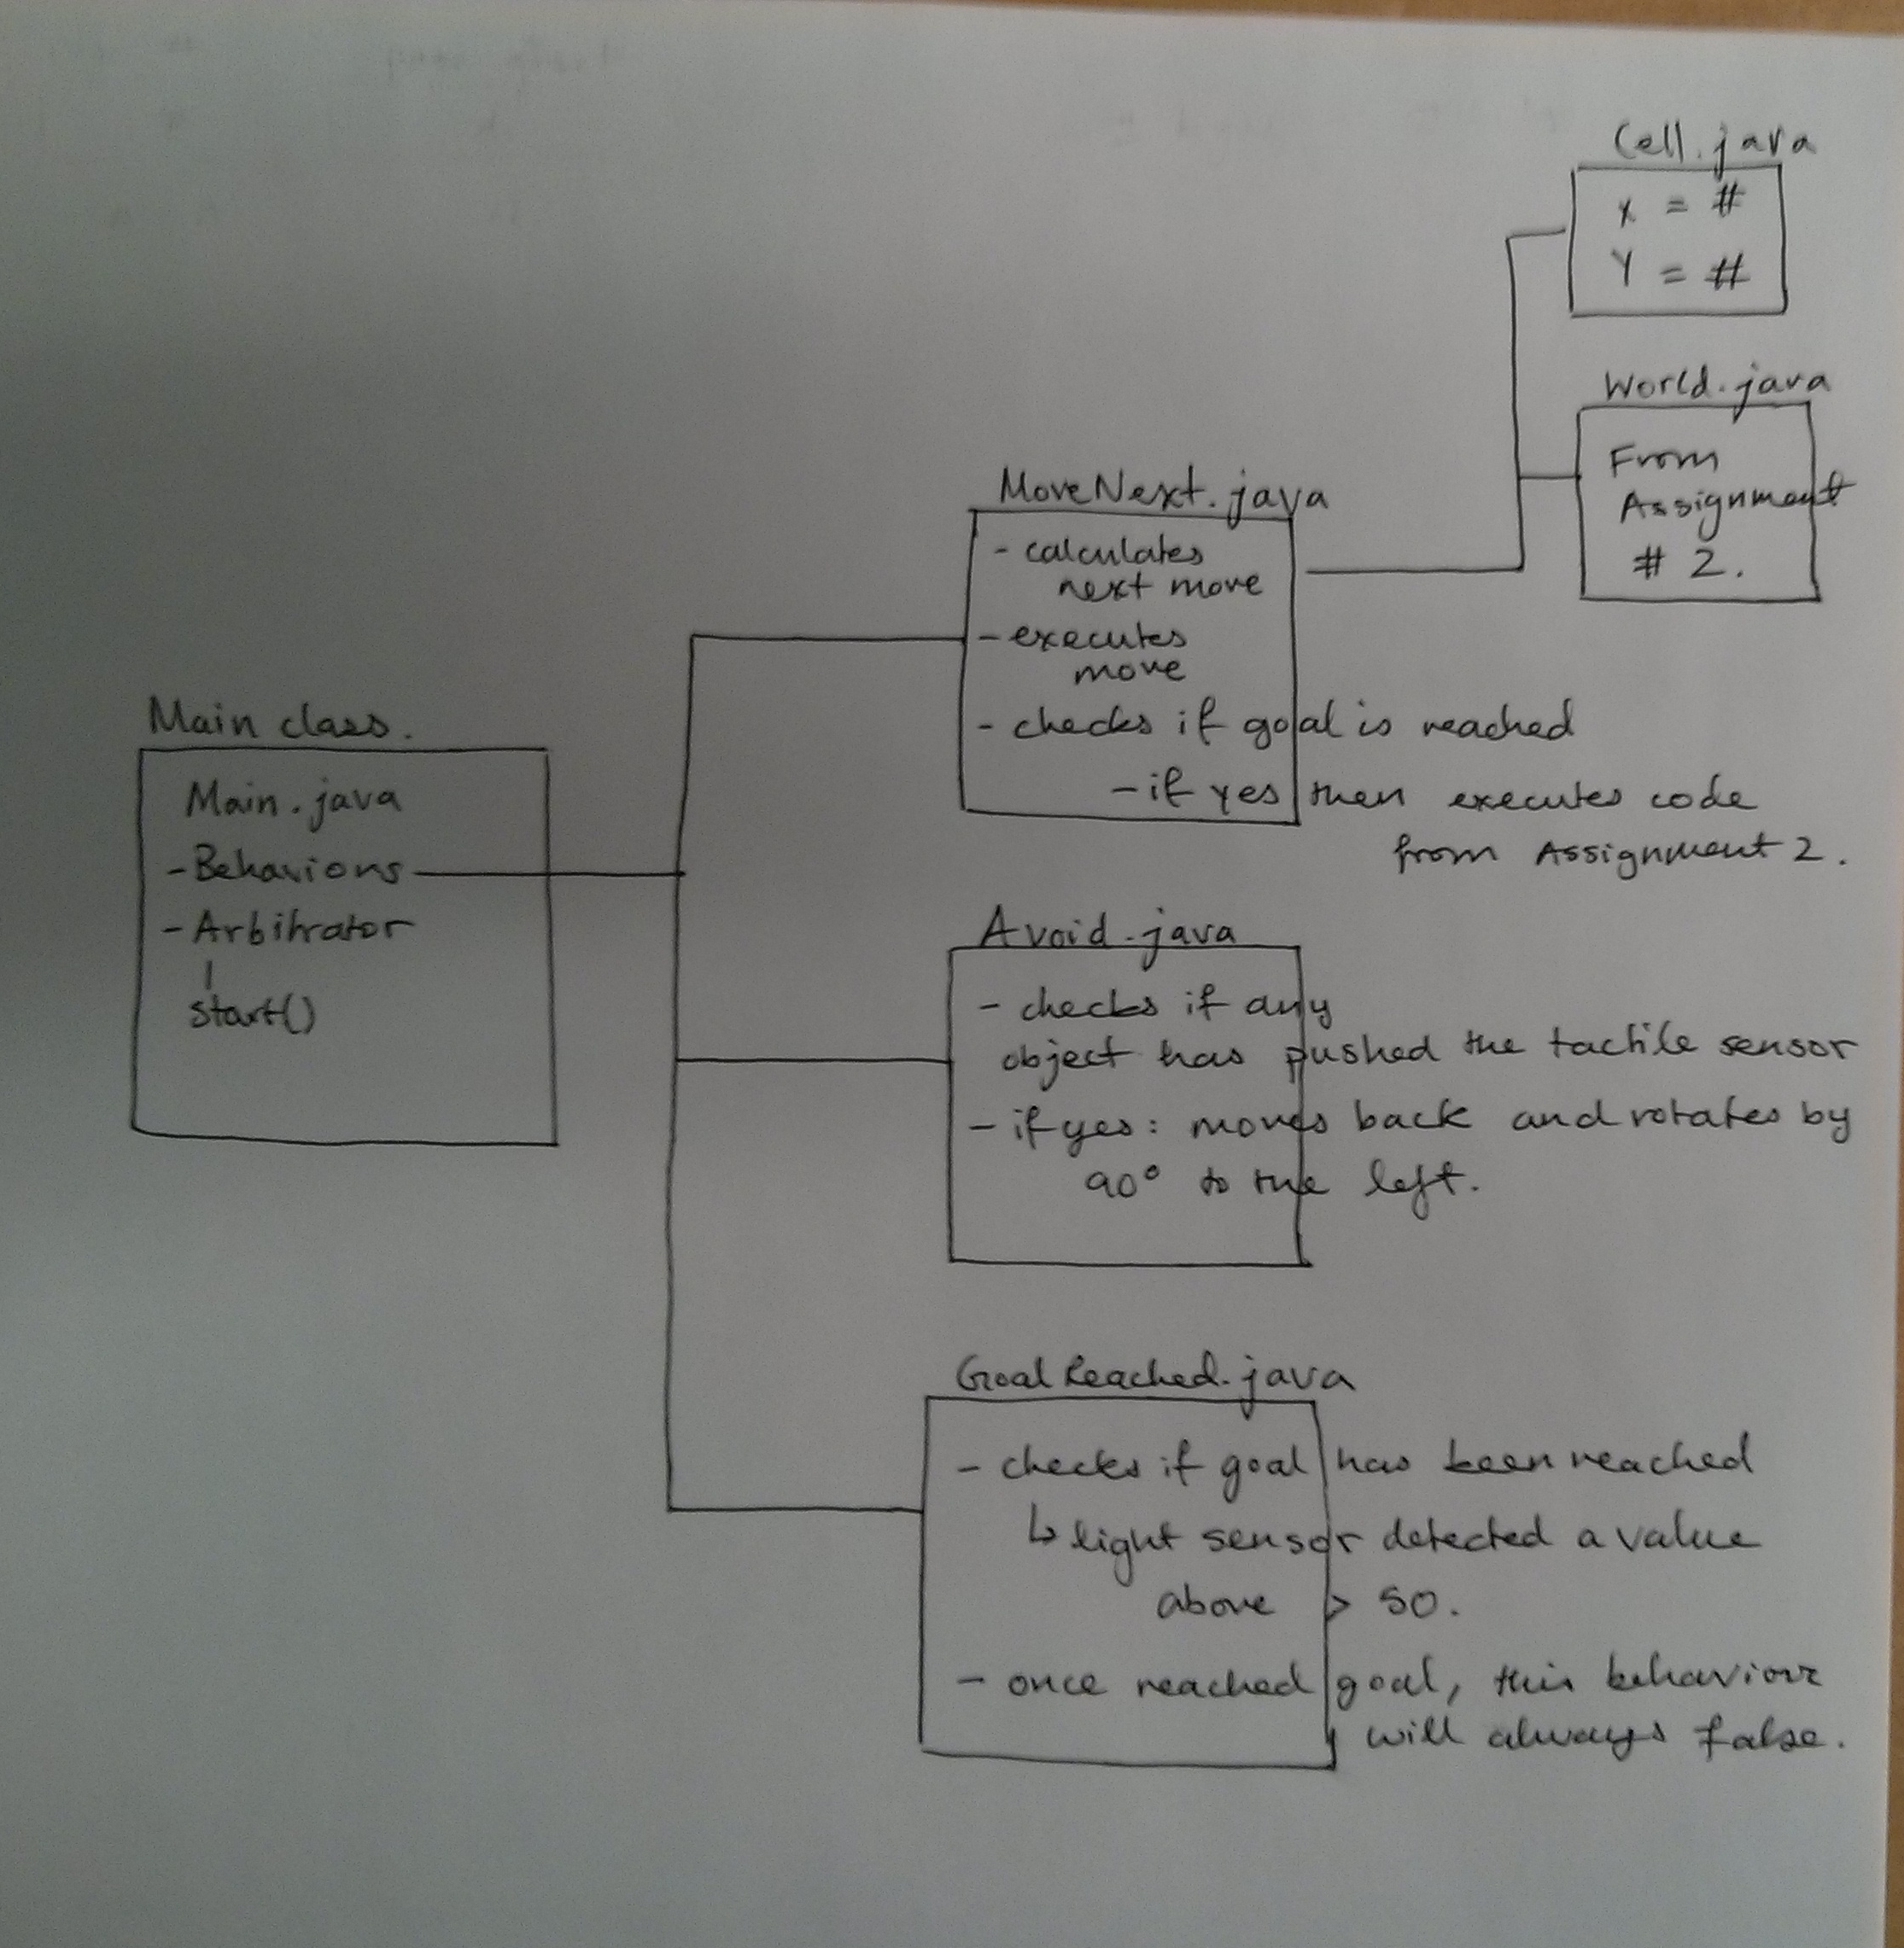 Cell.java
X = #
Y = #
World.java
From
Assignment
# 2.
MoveNext.java
- calculates
next move
- executes
move
- checks if goal is reached
- if yes then executes code
from Assignment 2.
Main class.
Main.java
- Behaviors
- Arbitrator
start()
Avoid.java
- checks if any
object has pushed the tactile sensor
- if yes: moves back and rotates by
90° to the left.
GoalReached.java
- checks if goal has been reached
↳ light sensor detected a value
above > 50.
- once reached goal, this behaviour
will always false.